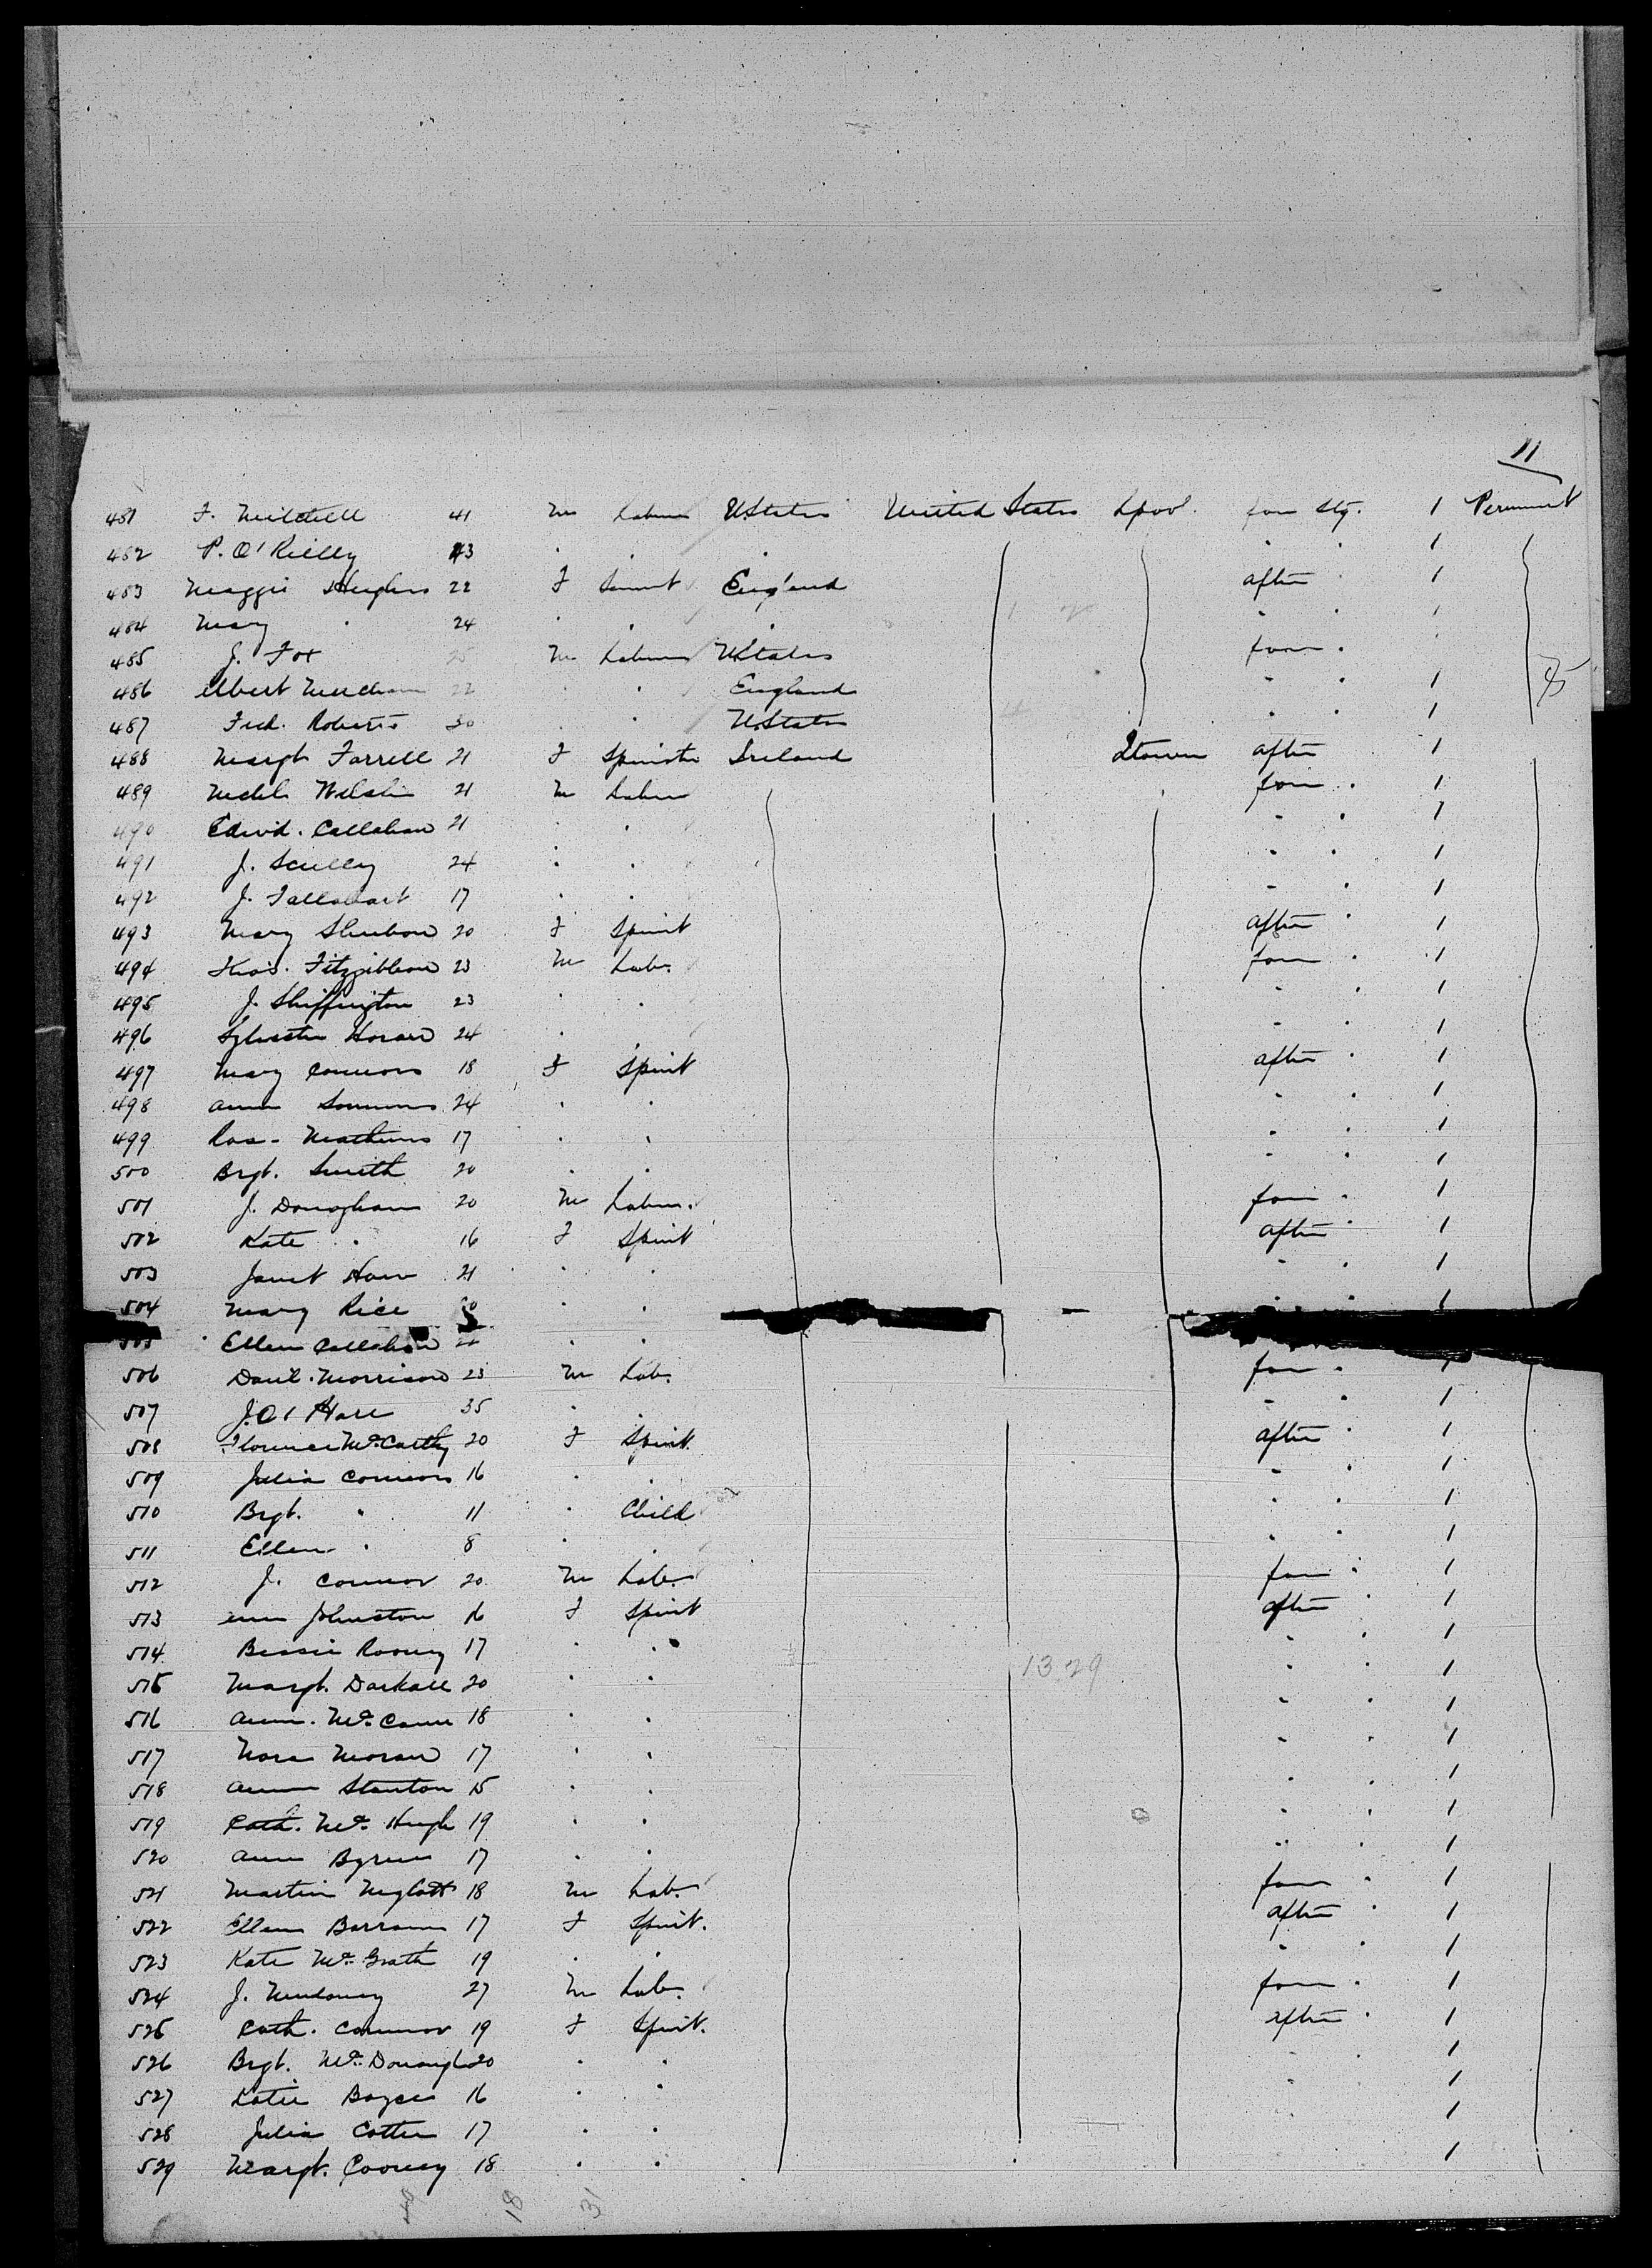 11
481 F. Mitchell 41 M Labour U.States United States Lpool for Stg. 1 Permanent
482 P. O'Rielly 43 " " " " " 1
483 Maggie Hughes 22 F Servnt England after " 1
484 Mary " 24 " " " " " 1
485 J. Fox 25 M Labour U.States for "
486 Albert 22 " " England " " 1
487 Fred. Roberts 30 " " U.States " " 1
488 Margt Farrell 21 F Spinster Ireland Qtown after 1
489 Michl. Walsh 21 M Labour for " 1
490 Edwd. Callahan 21 " " " " 1
491 J. Scully 24 " " " " 1
492 J. 17 " " " " 1
493 Mary 20 F Spinst after " 1
494 Thos. Fitzgibbon 23 M Lab. for " 1
495 J. Skiffington 23 " " " " 1
496 Sylvester Horan 24 " " " 1
497 Mary Connors 18 F Spinst after " 1
498 Ann 24 " " " " 1
499 Rose Mathews 17 " " " " 1
500 Brgt. Smith 20 " " " " 1
501 J. Donoghan 20 M Labour. for " 1
502 Kate " 16 F Spinst after " 1
503 Janet 21 " " " " 1
504 Mary Rice " " " " 1
505 Ellen Callahan " "
506 Danl. Morrison 23 M Lab. for " 1
507 J. O'Hare 35 " " " " 1
508 Florence McCarthy 20 F Spinst. after " 1
509 Julia Connors 16 " " " " 1
510 Brgt. " 11 " Child " " 1
511 Ellen " 8 " " " " 1
512 J. Connor 20 M Lab. for " 1
513 Johnston 16 F Spinst after " 1
514 Bessie Rooney 17 " " " " 1
1329
515 Margt. Darkall 20 " " " " 1
516 Ann. McCann 18 " " " " 1
517 Nora Moran 17 " " " " 1
518 Ann Stanton 15 " " " " 1
519 Cath. McHugh 19 " " " " 1
520 Ann Byrne 17 " " " " 1
521 Martin 18 M Lab. for " 1
522 Ellen 17 F Spinst. after " 1
523 Kate McGrath 19 " " " " 1
524 J. 27 M Lab. for " 1
525 Cath. Connor 19 F Spinst. after " 1
526 Brgt. McDonough 20 " " " " 1
527 Katie Boyce 16 " " " 1
528 Julia Cotter 17 " " " 1
529 Margt. Cooney 18 " " 1
18 31